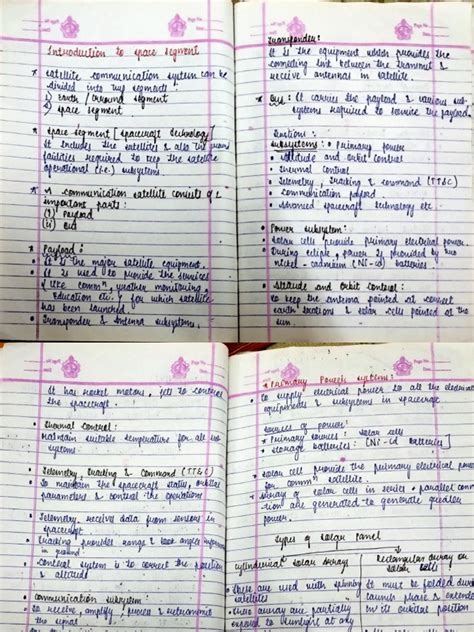 Introduction to space segment
* satellite communication system can be
divided into two segments
1) earth / Ground segment
2) space segment
* space segment [spacecraft technology]
It includes the satellite & also the
facilities required to keep the satellite
operational (i.e.) subsystems
* A communication satellite consists of 2
important parts:
(i) Payload
(ii) Bus
* Payload:
It is the major satellite equipment.
It is used to provide the services
like commn, weather monitoring,
Education etc; for which satellite
has been launched.
Transponder & Antenna subsystems.
Transponder:
It is the equipment which provides the
connecting link between the transmit &
receive antennas in satellite.
* Bus: It carries the payload & various sub-
systems required to service the payload.
subsystems: • Primary power
• Attitude and orbit control
• Thermal control
• Telemetry, Tracking & command (TT&C)
• communication payload
• Advanced spacecraft technology etc.
• Power subsystem:
• solar cells provide primary electrical power.
• During eclipse, power is provided by
nickel-cadmium (Ni-cd) batteries
• Attitude and orbit control:
to keep the antenna pointed at correct
earth locations & solar cells pointed at the
sun.
It has rocket motors, jets to control
the spacecraft.
• Thermal control:
Maintain suitable temperature for all sub-
systems.
• Telemetry, tracking & Command (TT&C)
• To maintain the spacecraft status, orbital
parameters & control the operations
• Telemetry receive data from sensors in
spacecraft
• Tracking provides range & look angles
in ground
• control system is to correct the position
& altitude
• communication subsystem
• to receive, amplify, process & retransmit
the signal
* Primary Power systems:
• To supply electrical power to all the electronic
equipments & subsystems in spacecraft
sources of power:
* Primary sources: solar cells
* storage batteries: [Ni-cd batteries]
• solar cell provide the primary electrical power
for commn satellite.
• Array of solar cells in series-parallel conne-
tion are generated to generate greater
power.
Types of solar panel
cylindrical solar arrays
Rectangular array or
solar cells
• these are used with spinning
satellites
• these array are partially
exposed to sunlight at any
• It must be folded during
launch phase & extended
in its orbital position